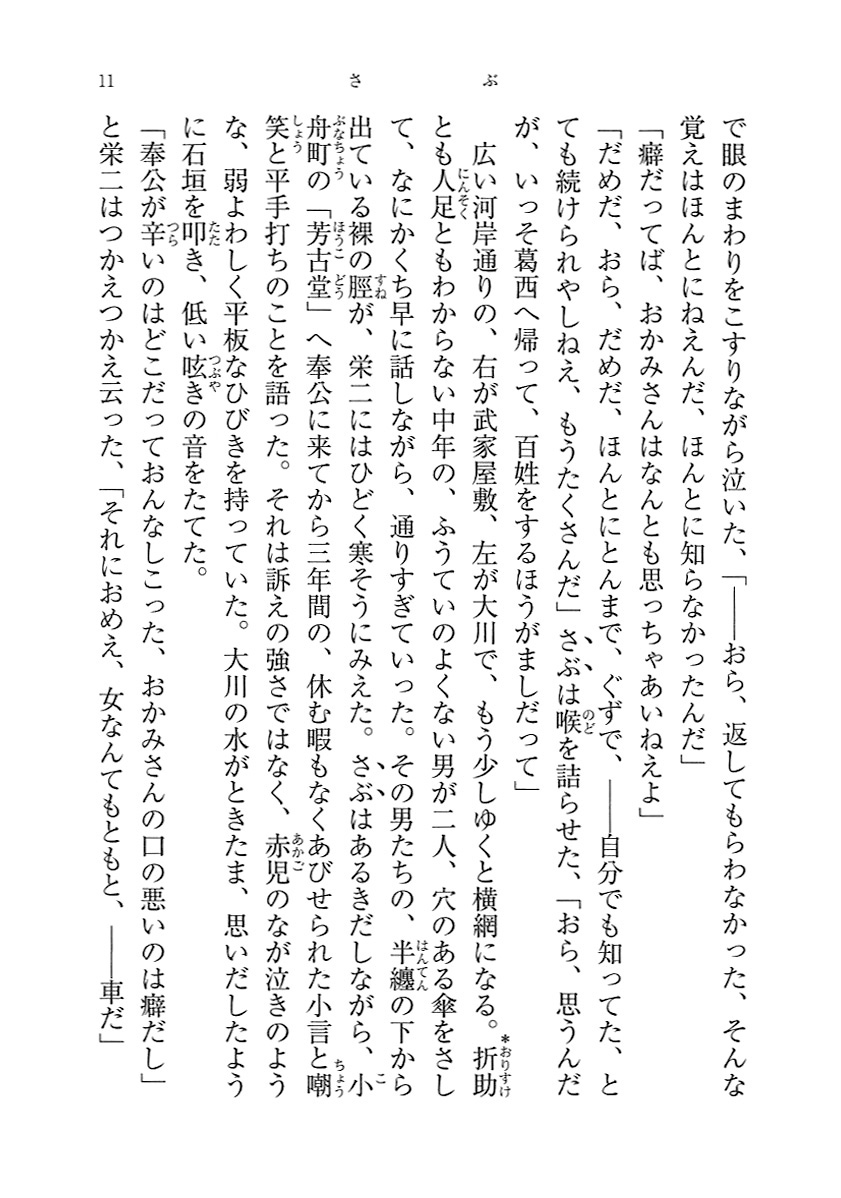 さぶ
11
で眼のまわりをこすりながら泣いた、「――おら、返してもらわなかった、そんな
覚えはほんとにねえんだ、ほんとに知らなかったんだ」
「癖だってば、おかみさんはなんとも思っちゃあいねえよ」
「だめだ、おら、だめだ、ほんとにとんまで、ぐずで、――自分でも知ってた、と
ても続けられやしねえ、もうたくさんだ」さぶは喉を詰らせた、「おら、思うんだ
が、いっそ葛西へ帰って、百姓をするほうがましだって」
広い河岸通りの、右が武家屋敷、左が大川で、もう少しゆくと横網になる。*折助
とも人足ともわからない中年の、ふうていのよくない男が二人、穴のある傘をさし
て、なにかくち早に話しながら、通りすぎていった。その男たちの、半纏の下から
出ている裸の脛が、栄二にはひどく寒そうにみえた。さぶはあるきだしながら、小
舟町の「芳古堂」へ奉公に来てから三年間の、休む暇もなくあびせられた小言と嘲
笑と平手打ちのことを語った。それは訴えの強さではなく、赤児のなが泣きのよう
な、弱よわしく平板なひびきを持っていた。大川の水がときたま、思いだしたよう
に石垣を叩き、低い呟きの音をたてた。
「奉公が辛いのはどこだっておんなしこった、おかみさんの口の悪いのは癖だし」
と栄二はつかえつかえ云った、「それにおめえ、女なんてもともと、――車だ」